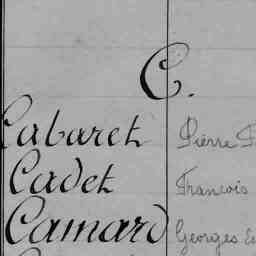 C.
Cabaret Pierre
Cadet François
Camard Georges